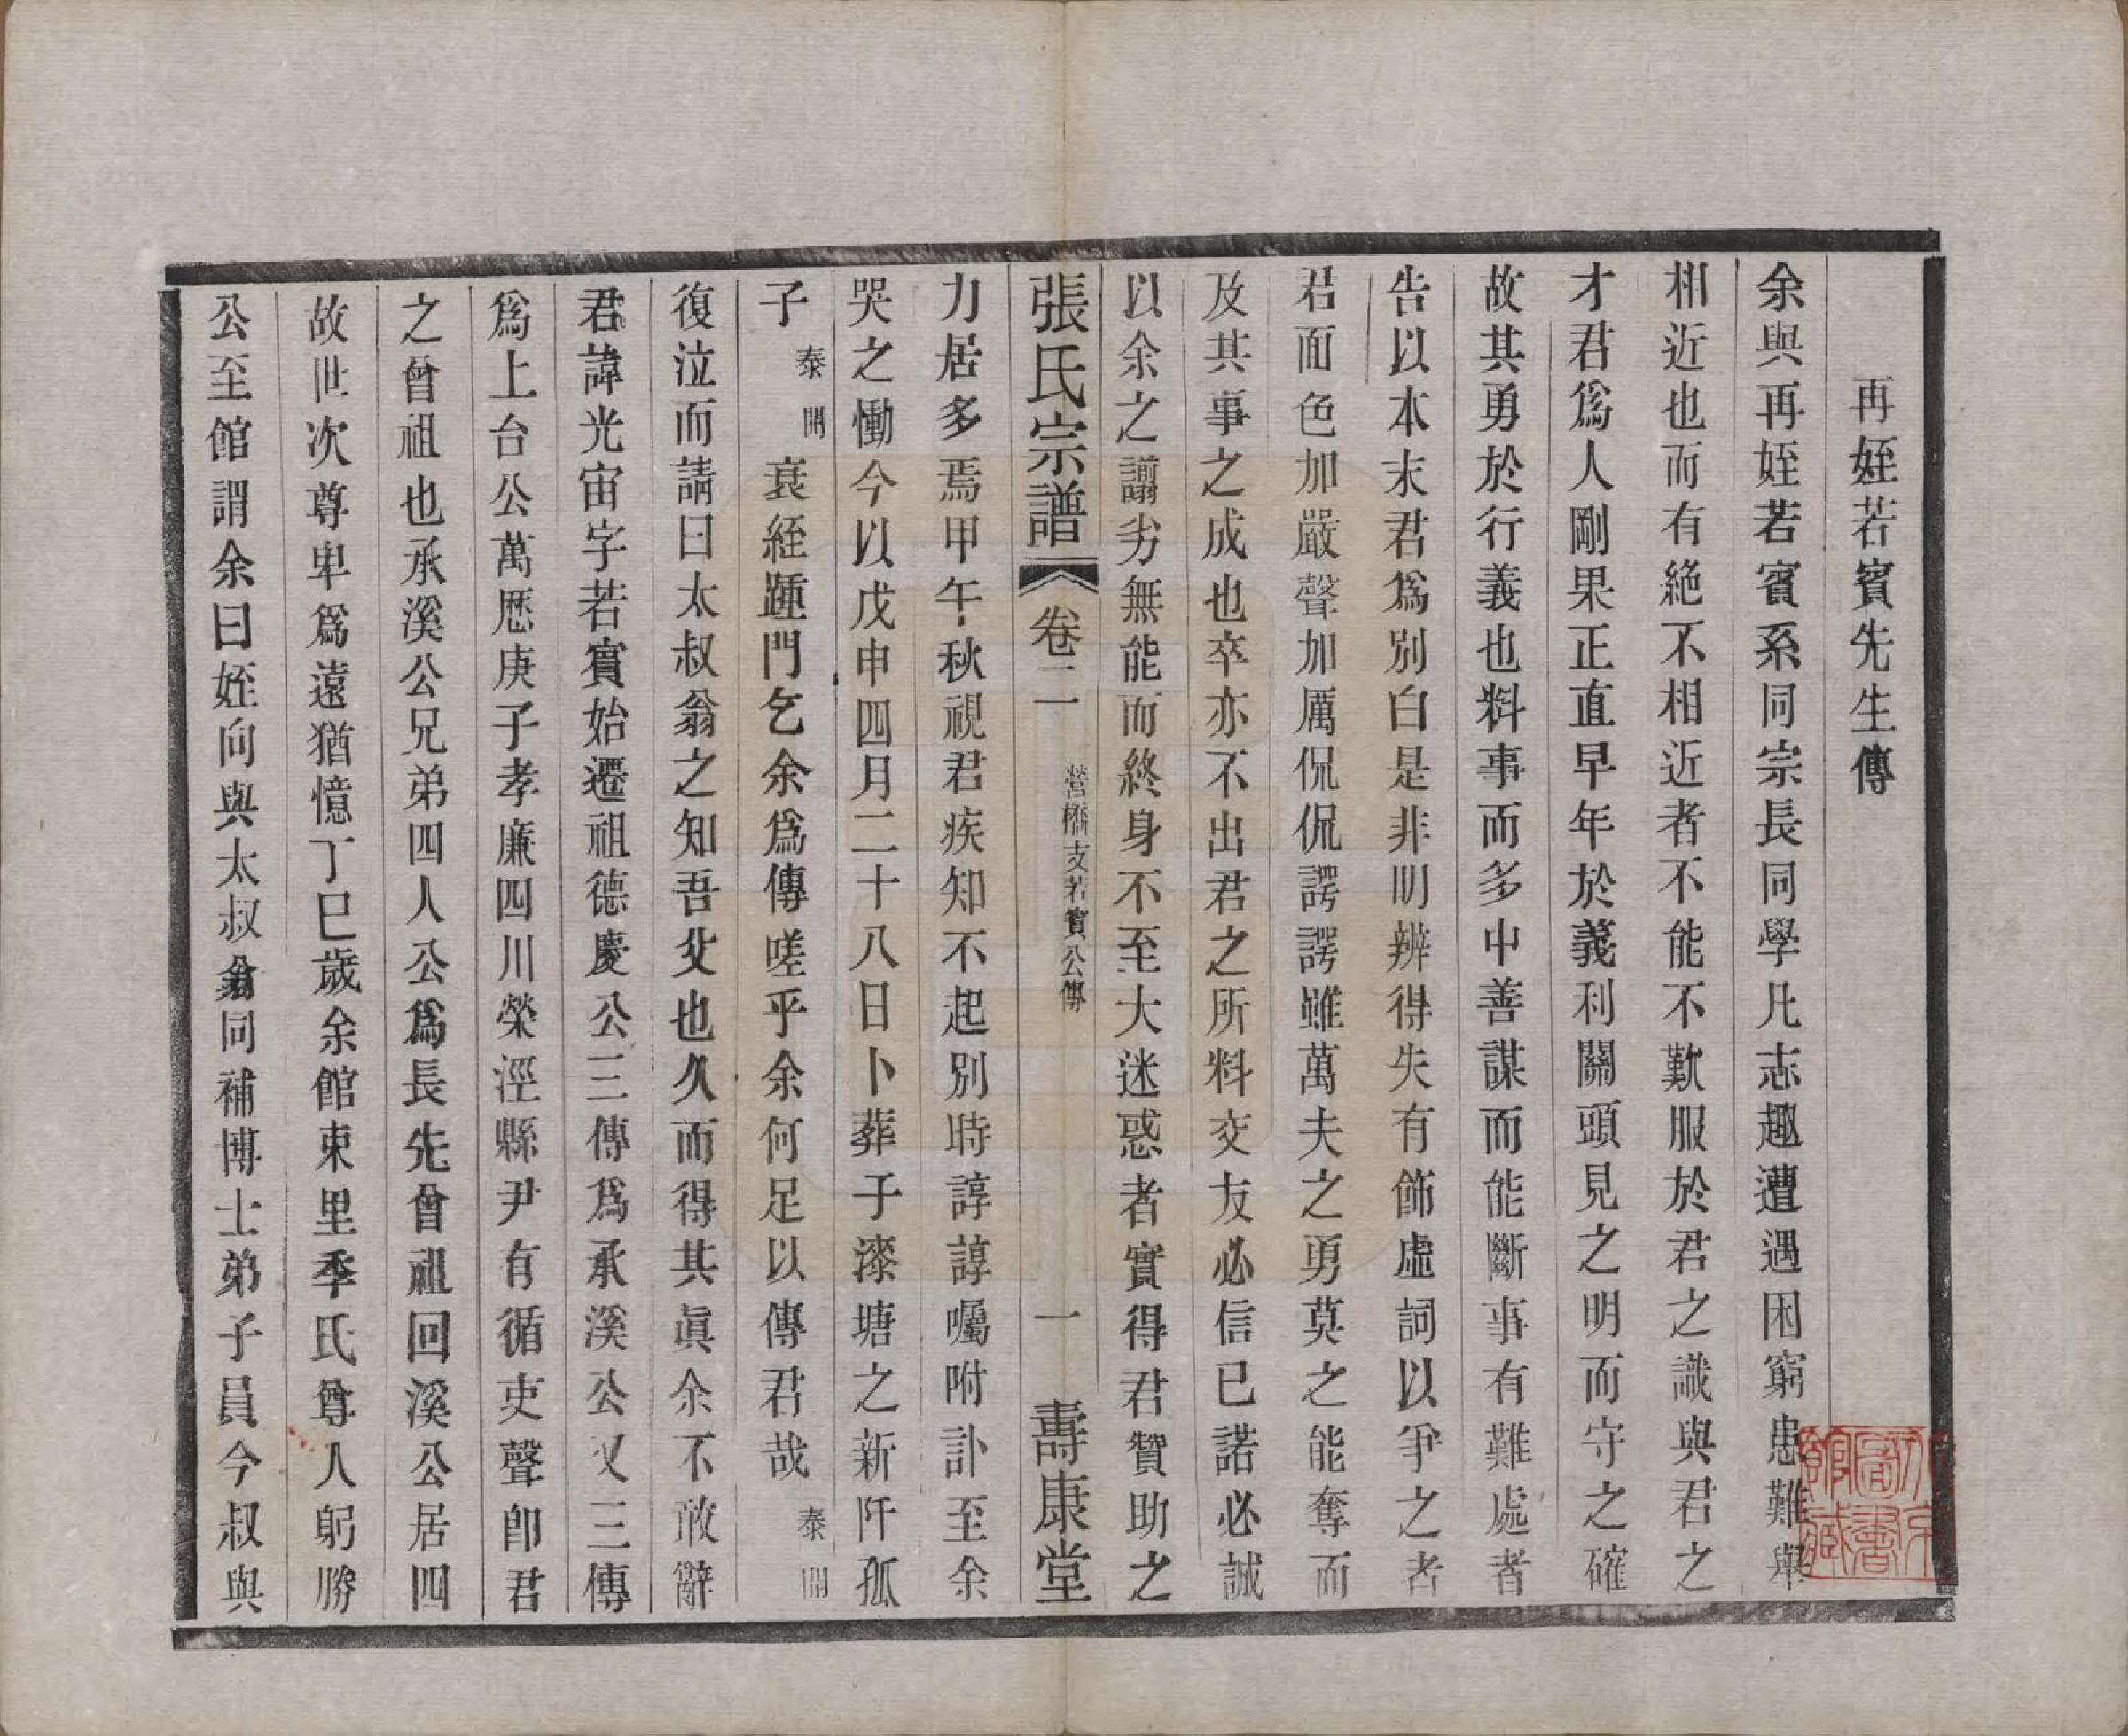 再姪若賓先生傳
余與再姪若賓系同宗長同學凡志趣遭遇困窮患難與
相近也而有絶不相近者不能不歎服於君之識與君之
才君爲人剛果正直早年於義利關頭見之明而守之確
故其勇於行義也料事而多中善謀而能斷事有難處者
告以本末君爲別白是非明辨得失有飾虛詞以爭之者
君面色加嚴聲加厲侃侃諤諤雖萬夫之勇莫之能奪而
及其事之成也卒亦不出君之所料交友必信已諾必誠
以余之譾劣無能而終身不至大迷惑者實得君贊助之
張氏宗譜 卷二 營橋支若賓公傳 一 壽康堂
力居多焉甲午秋視君疾知不起別時諄諄囑咐訃至余
哭之慟今以戊申四月二十八日卜葬于漆塘之新阡孤
子泰開衰絰踵門乞余爲傳嗟乎余何足以傳君哉泰開
復泣而請曰太叔翁之知吾父也久而得其眞余不敢辭
君諱光宙字若賓始遷祖德慶公三傳爲承溪公又三傳
爲上台公萬厯庚子孝廉四川榮涇縣尹有循吏聲卽君
之曾祖也承溪公兄弟四人公爲長先曾祖回溪公居四
故世次尊卑爲遠猶憶丁巳歲余館東里季氏尊人躬勝
公至館謂余曰姪向與太叔翁同補博士弟子員今叔與
京圖書館藏